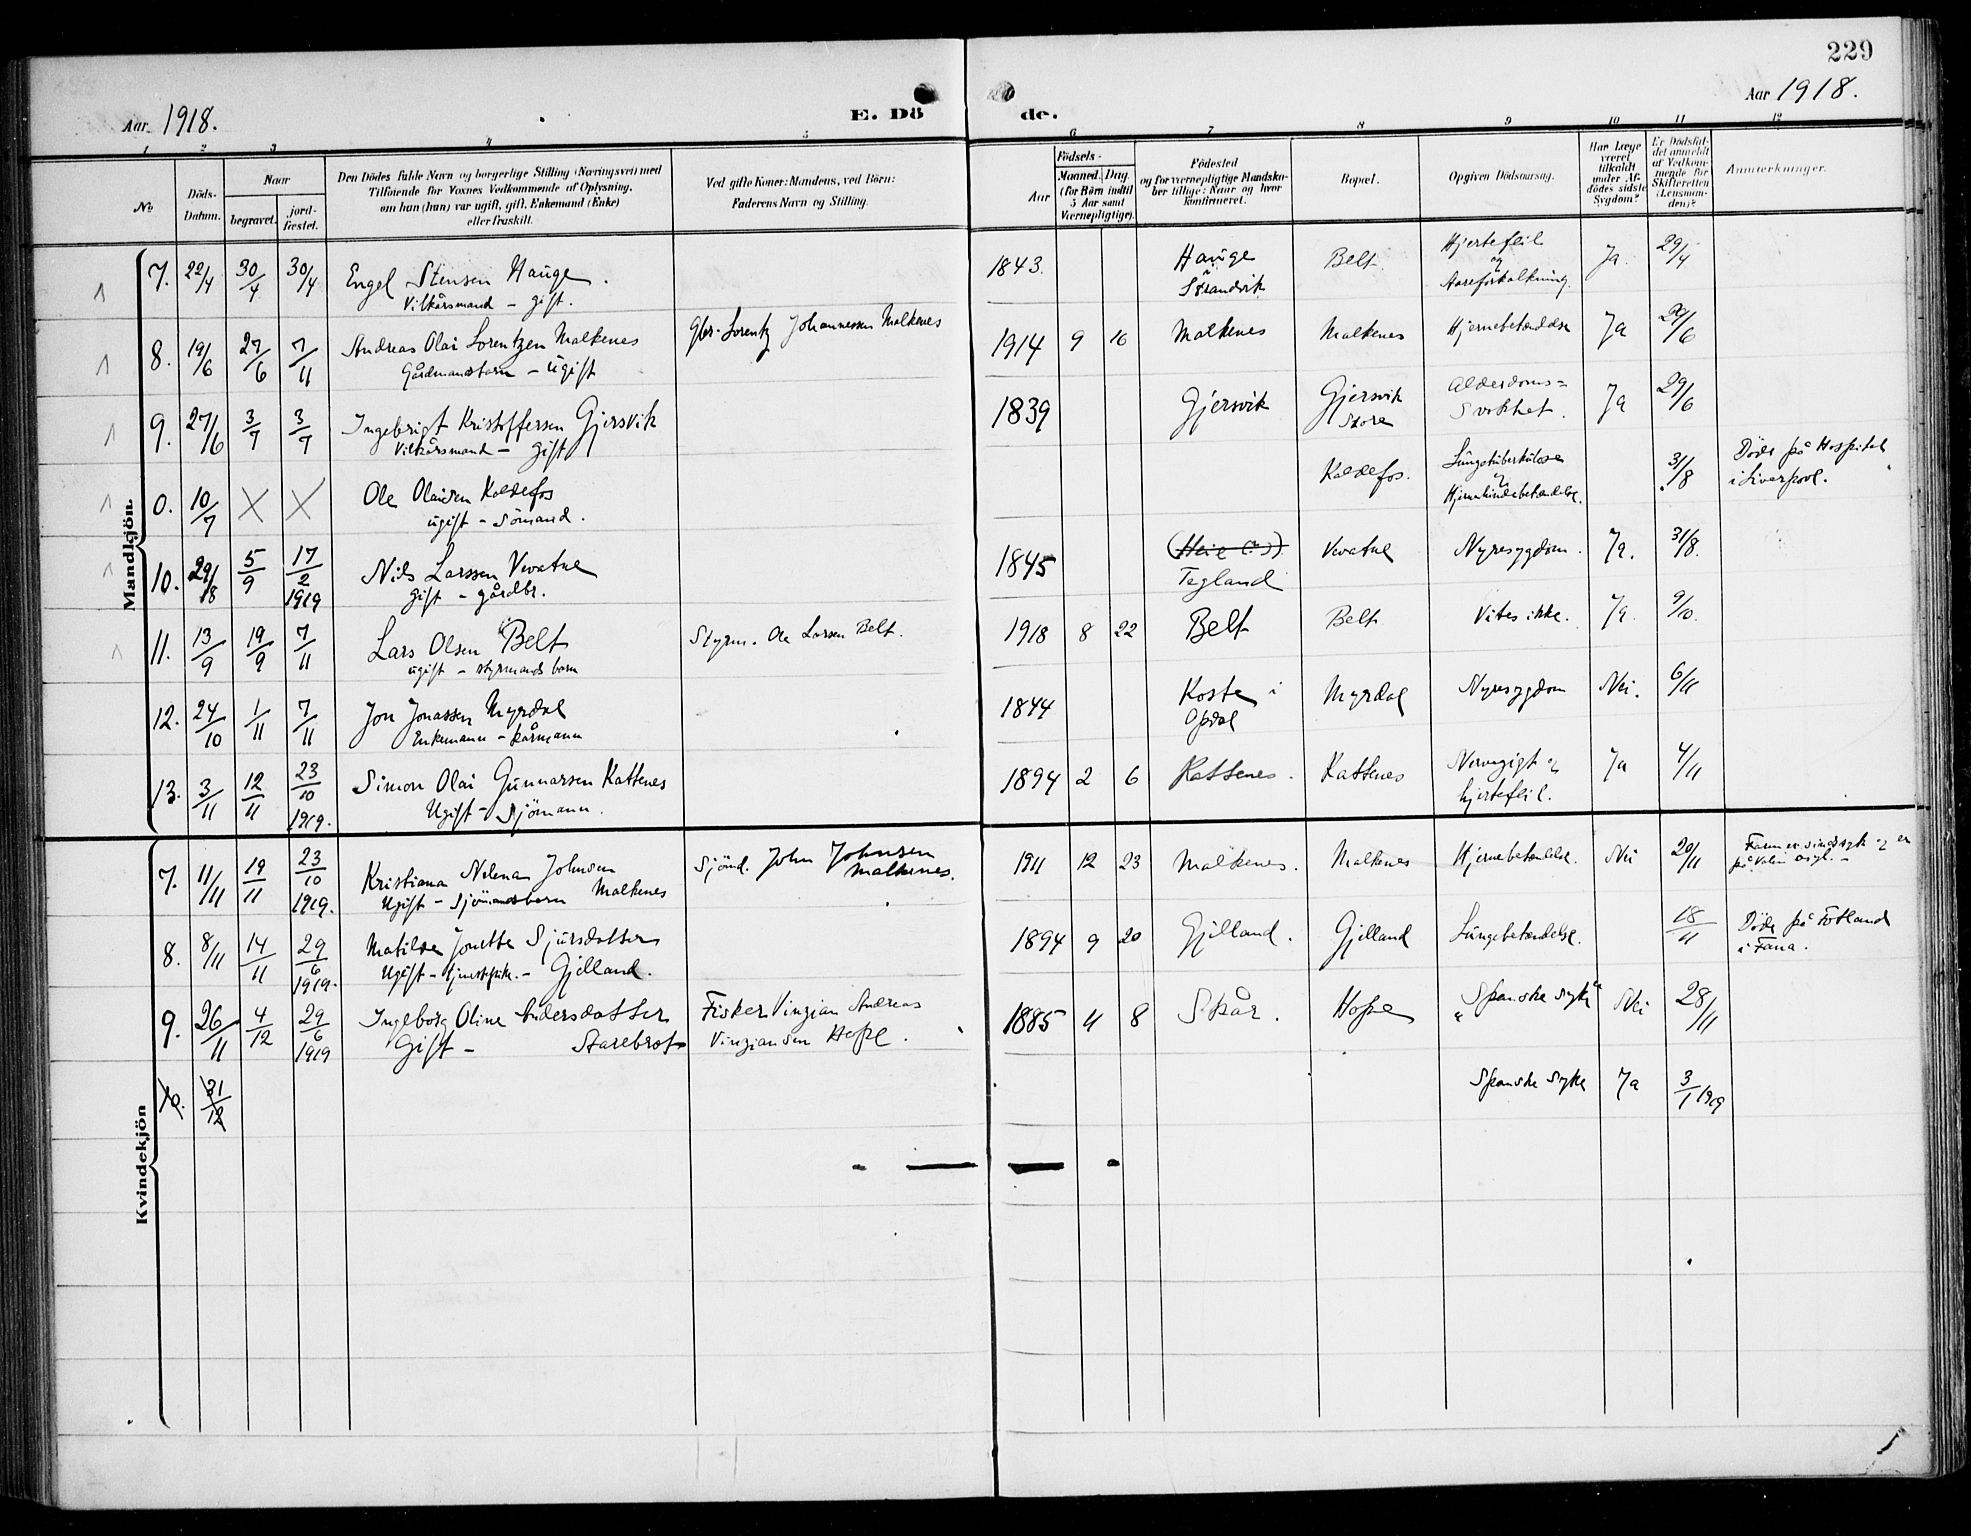 229
Aar 1918.
E. Dö
de.
Aar 1918.
1 2 3 4 5 6 7 8 9 10 11 12
No
Döds-
Datum.
Naar
begravet.
jord-
fæstet.
Den Dödes fulde Navn og borgerlige Stilling (Næringsvei) med
Tilföiende for Voxnes Vedkommende af Oplysning,
om han (hun) var ugift, gift, Enkemand (Enke)
eller fraskilt.
Ved gifte Koner: Mandens, ved Börn:
Faderens Navn og Stilling.
Födsels-
Aar
Maaned. Dag.
(for Börn indtil
5 Aar samt
Værnepligtige).
Födested
og for værnepligtige Mandska-
ber tillige: Naar og hvor
konfirmeret.
Bopæl.
Opgiven Dödsaarsag.
Har Læge
været
tilkaldt
under Af-
dödes sidste
Sygdom?
Er Dödsfal-
det anmeldt
af Vedkom-
mende for
Skifteretten
(Lensman-
den)?
Anmærkninger.
Mandkjön.
7. 22/4 30/4 30/4 Engel Stensen Hauge. 1843. Hauge Belt. Hjertefeil Ja. 29/4
Vilkårsmand - gift. i Strandvik og Aareforkalkning.
8. 19/6 27/6 7/11 Andreas Olai Lorentzen Malkenes Gbr. Lorentz Johannessen Malkenes 1914 9 16 Malkenes Malkenes Hjernebetændelse Ja 29/6
Gårdmandsbarn - ugift
9. 27/6 3/7 3/7 Ingebrigt Kristoffersen Gjersvik 1839 Gjersvik Gjersvik Alderdoms= Ja 29/6
Vilkårsmand - gift Store Svakhet.
0. 10/7 X X Ole Olaisen Kaldefos Kaldefos. Lungetuberkulose 31/8 Döde på Hospital
ugift - Sömand. og Hjernehindebetændelse. i Liverpool.
10. 29/8 5/9 17/2 1919 Nils Larssen Vevatne 1845 (Heie (?)) Vevatne Nyresygdom. Ja. 31/8.
gift - gårdbr. Tegland
11. 13/9 19/9 7/11 Lars Olsen Belt Styrm. Ole Larsen Belt. 1918 8 22 Belt Belt Vites ikke. Ja. 9/10.
ugift - styrmands barn
12. 24/10 1/11 7/11 Jon Jonassen Myrdal 1844 Koste i Myrdal Nyresygdom Nei. 6/11
Enkemann - kårmann Opdal
13. 3/11 12/11 23/10 1919. Simon Olai Gunnarsen Kattenes 1894 2 6 Kattenes. Kattenes Nervegigt og Ja 4/11
Ugift - Sjömann. hjertefeil.
Kvindekjön
7. 11/11 19/11 23/10 1919. Kristiana Nelena Johnsen Sjömd. John Johnsen 1911 12 23 Malkenes. Malkenes Hjernebetændelse. Nei 20/11 Faren er sindssyk og er
Ugift - Sjömandsbarn Malkenes Malkenes. på Valen asyl. -
8. 8/11 14/11 29/6 1919. Matilde Jonette Sjursdatter 1894 9 20 Gjilland. Gjilland Lungebetændelse. 18/11 Döde på Fotland
Ugift - tjenestepike. - Gjilland. i Fana.
9. 26/11 4/12 29/6 1919 Ingeborg Oline Andersdatter Fisker Vinzian Andreas 1885 4 8 Skår. Hope "Spanske syke" Nei 28/11
Gift - Starebrot Vinziansen Hope.
10. 31/12 Spanske syke Ja 3/1 1919